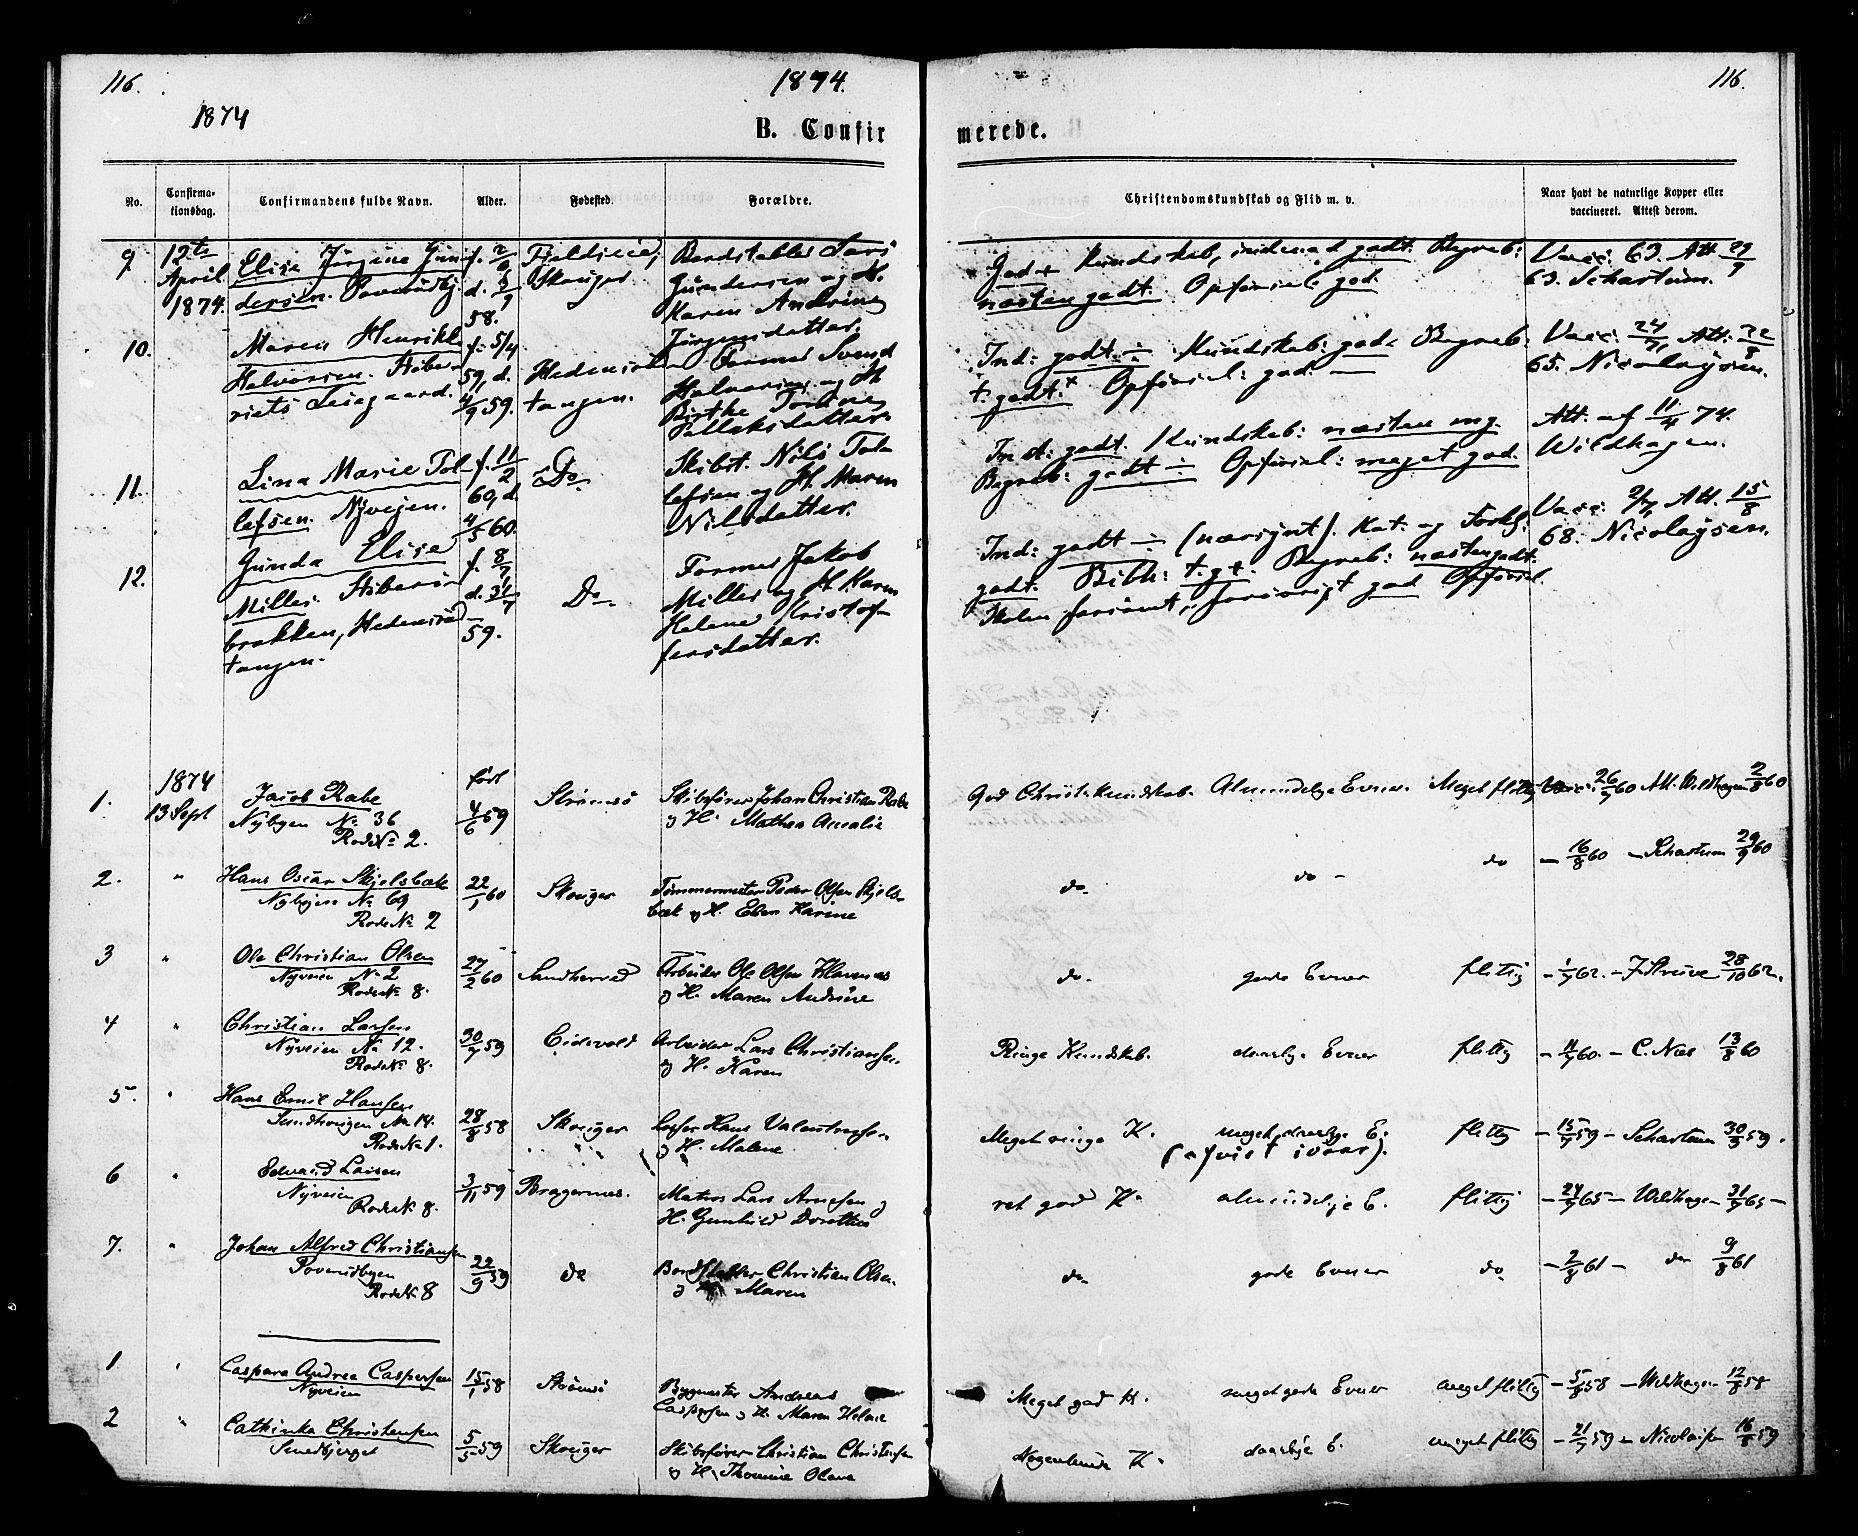 116.
1874.
116.
1874
B. Confir
merede.
No.
Confirma-
tionsdag.
Confirmandens fulde Navn.
Alder.
Fødested.
Forældre.
Christendomskundskab og Flid m. v.
Naar havt de naturlige Kopper eller
vaccineret. Attest derom.
9
12te
April
1874.
Elise Jørgine Gun-
dersen.
58.
Skouger
Lars
Gundersen og H.
Karen Andrine
Jørgensdatter.
God Kundskab, indenad godt. Begreb:
næsten godt. Opførsel god.
Vacc: 63. Att. 29/9
63. Schartum.
10.
Maren Henrikke
Halvorsen.
f. 5/4
59, d.
4/9 59.
Hedensrud-
tangen.
Former Svend
Halvorsen og H.
Birthe Torline
Ind: godt ÷ Kundskab: god. Begreb.
t. godt.+ Opførsel: god. —
Vacc: Att.
65. Nicolaysen.
11.
Lina Marie Tol-
lefsen. Nyvejen.
f. 11/2
60, d.
4/5 60.
Do
Skibst. Nils Tol-
lefsen og H. Maren
Nilsdatter.
Ind: godt. Kundskab: næsten mg.
Begreb: godt ÷ Opførsel: meget god.
Att. af 11/4 74.
Wildhagen.
12.
Gunda Elise
Milles.
brakken, Hedensrud
tangen.
f. 8/7
d. 31/7
59.
Do.
Former Jakob
Milles og H. Karen
Helene Kristof-
fersdatter.
Ind: godt ÷ (nærsynt). Kat: og Forkl:
godt. Bibh: t.g+. Begreb: næsten godt.
Skolen forsømt, forøvrigt god Opførsel.
Vacc: 2/7 Att. 15/8
68. Nicolaysen.
1.
1874
13 Sept
Jacob Rabe
Nybyen No 36
Rode No 2.
født
4/6 59
Strømsø
Skibsfører Johan Christian Rabe
og H. Mathea Amalie
God Christ. Kundskab.
Almindelige Evner.
Meget flittig
Vacc: 26/7 60 Att. Wildhagen 2/8 60
2.
"
Hans Oscar Skjelsbæk
Nybyen No 69
Rode No 2
22/1 60
Skouger
Tømmermester Peder Olsen Skjels-
bæk og H. Ellen Karine
do
do -
do
- 16/8 60 - Schartum 29/9 60
3
"
Ole Christian Olsen
Nyveien No 2
Rode No 8.
27/2 60
Sandherred
Arbeider Ole Olsen
og H. Maren Andrine
do.
gode Evner
flittig
- 1/7 62. - J. Struve 28/10 62.
4
"
Christian Larsen
Nyveien No 12.
Rode No 8.
30/7 59
Eidsvold
Arbeider Lars Christiansen
og H. Karen
Ringe Kundskab.
daarlige Evner
flittig
- 11/7 60. - C. Næs 13/8 60
5.
"
Hans Emil Hansen
No 14.
Rode No 1.
28/8 58
Skouger
Hans Valentinsen
og H. Malene
Meget ringe K.
meget daarlige E.
(afvist ivaar).
flittig
- 15/7 59 - Schartum 30/9 59.
6
"
Edvard Larsen
Nyveien
Rode No 8.
3/11 59
Bragernes.
Matros Lars Arnesen og
H. Gunhild Dorothea
ret god K.
almindelige E.
flittig
- 24/7 65 - Wildhagen 31/7 65 -
7.
"
Johan Alfred Christiansen
Poverudbyen
Rode No 8
22/9 59
do
Bordstabler Christian Olsen
og H. Maren
do.
gode Evner
do
- 2/8 61 - do 9/8 61
1
"
Caspara Andrea Caspersen
Nyveien
15/1 58
Strømsø
Bygmester Andreas
Caspersen og H. Maren Helene
Meget god K.
meget gode Evner
meget flittig
- 5/8 58 - Wildhagen 12/8 58
2
"
Cathinka Christensen
Smedbjerget
5/5 59
Skouger
Skibsfører Christian Christensen
og H. Thomine Olava
Nogenlunde K.
daarlige E.
meget flittig
- 21/7 59 - Nicolaisen 16/8 59